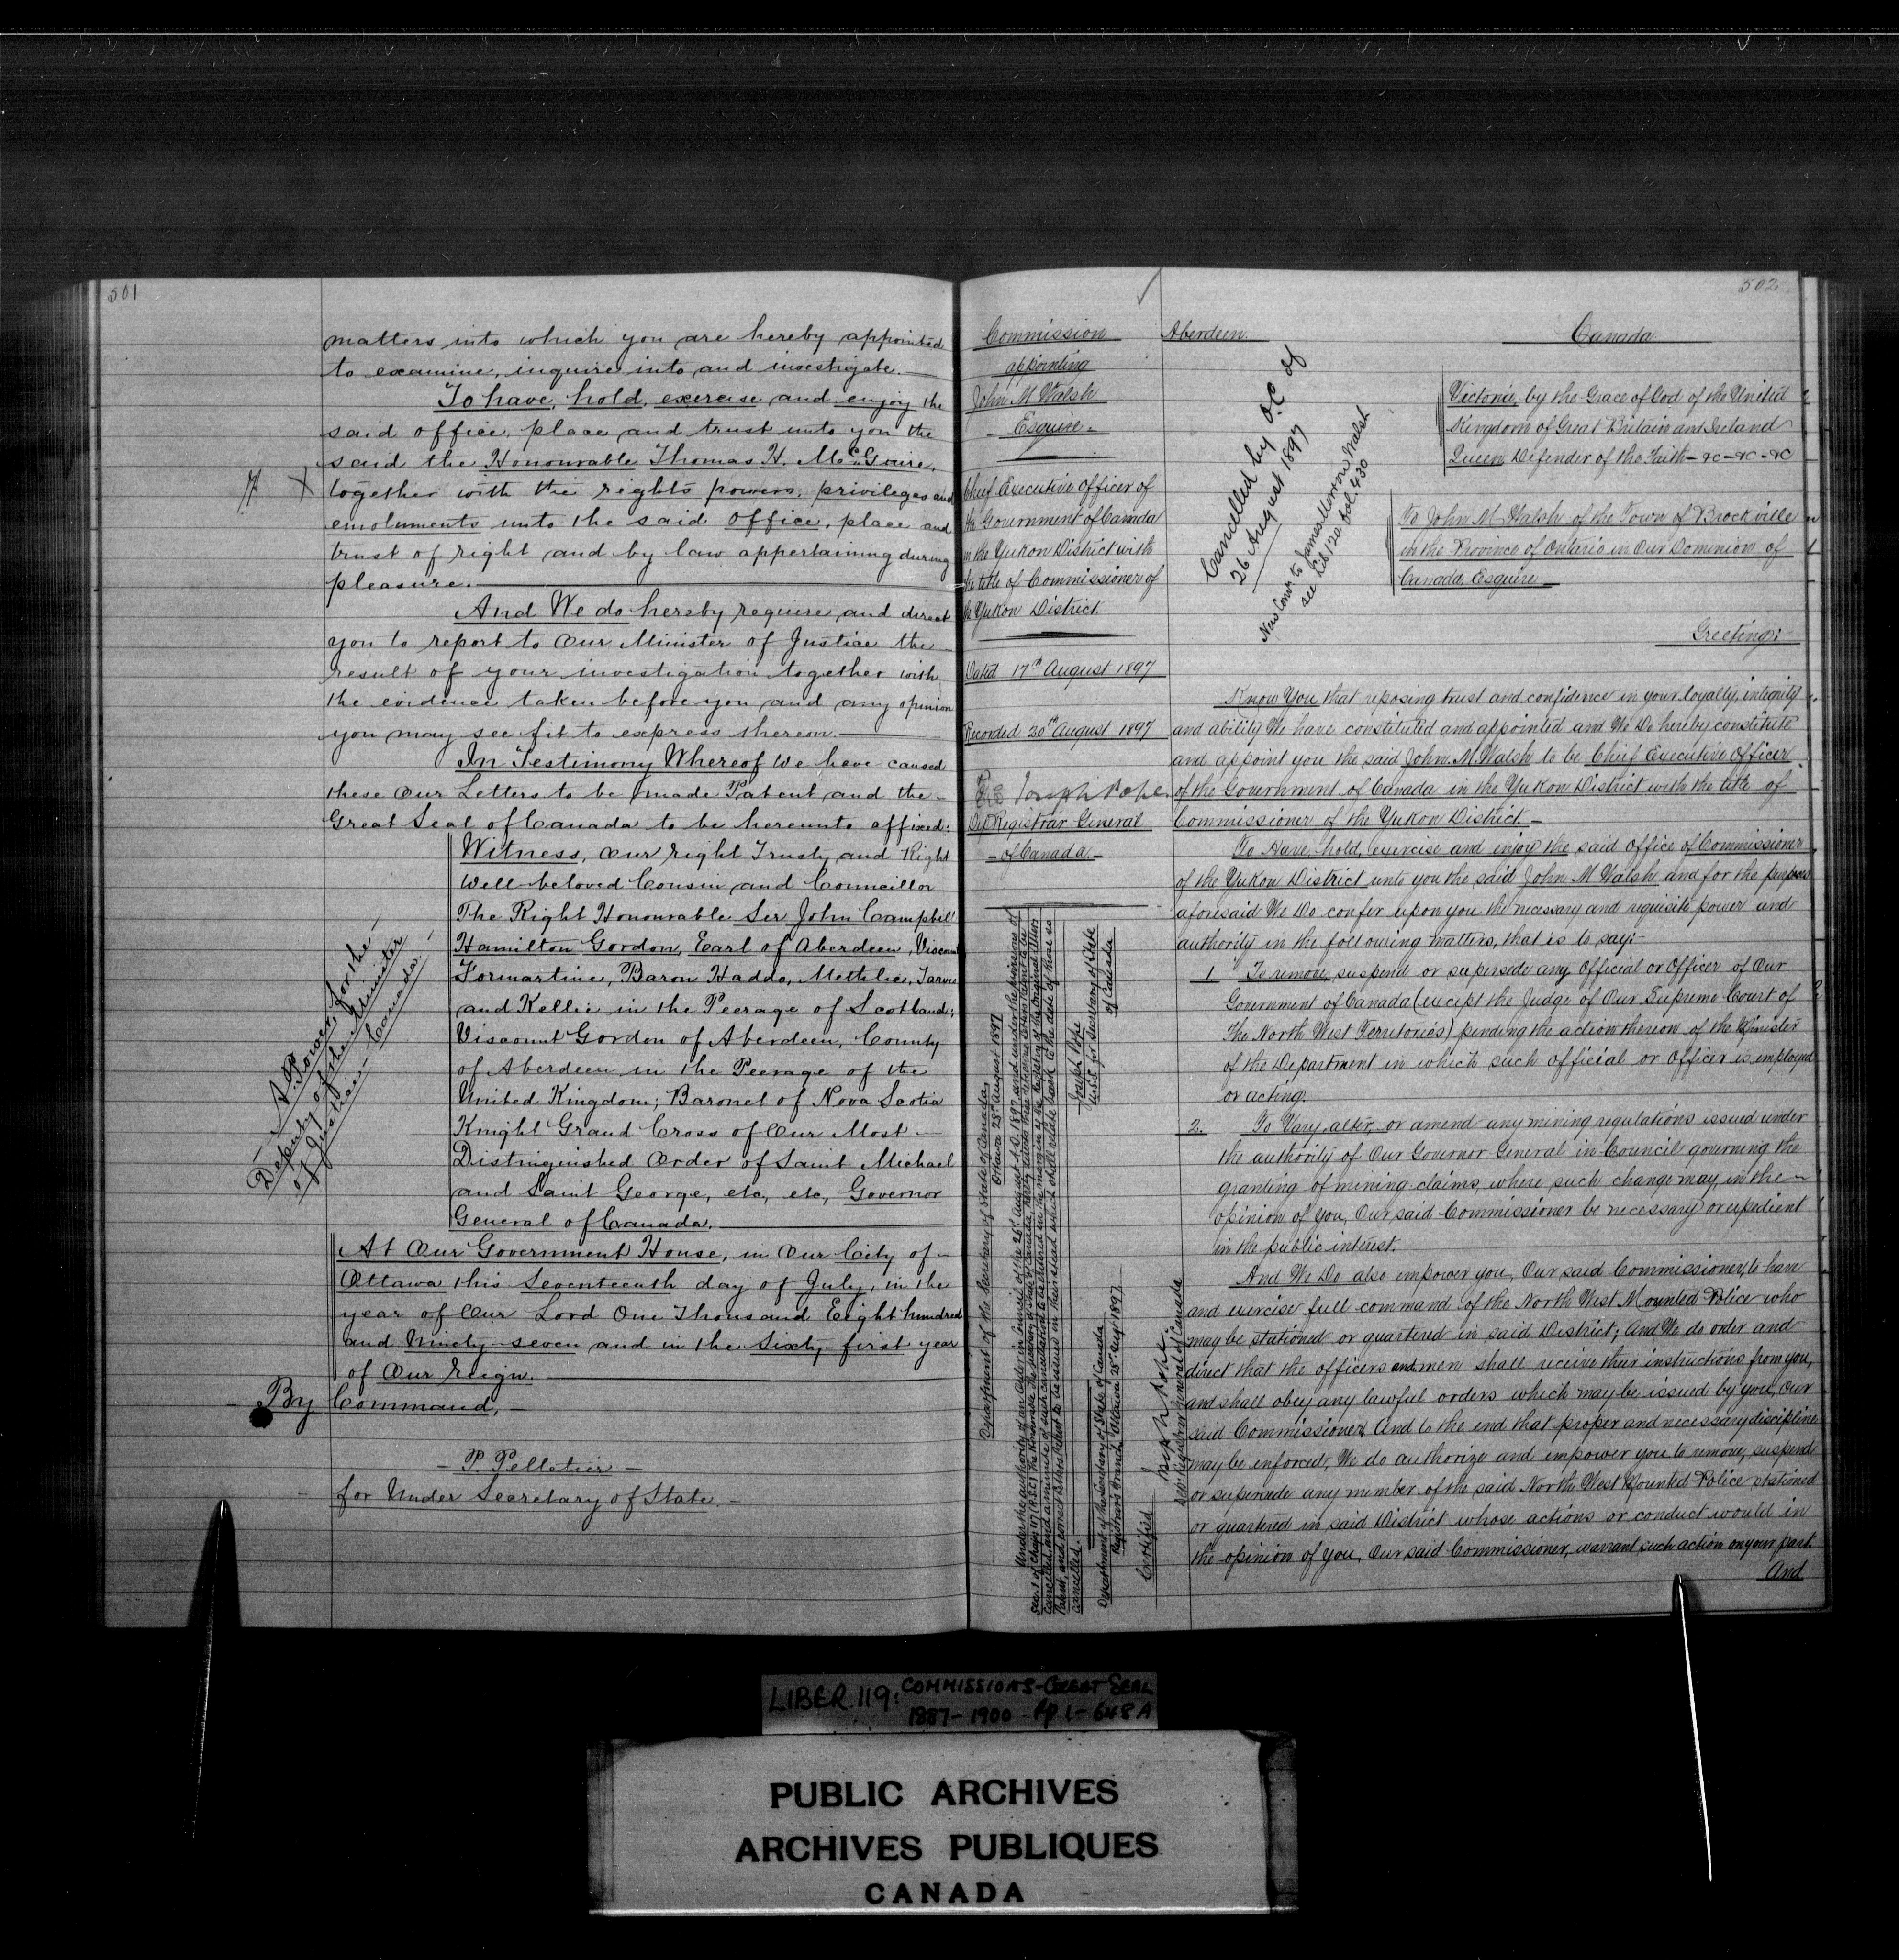 501
matters into which you are hereby appointed
to examine, inquire into and investigate.
To have, hold, exercise and enjoy the
said office, place and trust unto you the
said the Honourable Thomas H. McGuire,
together with the rights powers, privileges and
emoluments unto the said office, place and
trust of right and by law appertaining during
pleasure.
And We do hereby require and direct
you to report to Our Minister of Justice the
result of your investigation together with
the evidence taken before you and any opinion
you may see fit to express thereon.
In Testimony Whereof We have caused
these Our Letters to be made Patent and the
Great Seal of Canada to be hereunto affixed:
Witness, Our Right Trusty and Right
Well-beloved Cousin and Councillor
The Right Honourable Sir John Campbell
Hamilton Gordon, Earl of Aberdeen, Viscount
Formartine, Baron Haddo, Methlie, Tarves
and Kellie in the Peerage of Scotland;
Viscount Gordon of Aberdeen, County
of Aberdeen in the Peerage of the
United Kingdom; Baronet of Nova Scotia
Knight Grand Cross of Our Most
Distinguished Order of Saint Michael
and Saint George, etc, etc, Governor
General of Canada.
At Our Government House, in Our City of
Ottawa this Seventeenth day of July, in the
year of Our Lord One Thousand Eight hundred
and Ninety-seven and in the Sixty-first year
of Our Reign.
By Command,
P. Pelletier
for Under Secretary of State.
A. Power, for the
Deputy of the Minister
of Justice - Canada.
502
Commission
appointing
John M Walsh
Esquire
Chief Executive Officer of
the Government of Canada
in the Yukon District with
the title of Commissioner of
the Yukon District
Dated 17th August 1897
Recorded 20th August 1897
Joseph Pope
Dep Registrar General
of Canada
Department of the Secretary of State of Canada
Ottawa 28th August 1897
Under the authority of an Order in Council of the 26th August A.D. 1897 and under the provisions of
Cancelled.
Joseph Pope
U.S.S. for Secretary of State
of Canada
Department of the Secretary of State of Canada
Registrar's Branch, Ottawa 28th Aug 1897
Certified
Joseph Pope
Dep. Registrar General of Canada
Aberdeen.
Canada
Cancelled by O.C. of
26 August 1897
New Comn to James Morrow Walsh
see Lib 120 fol. 430
Victoria, by the Grace of God of the United
Kingdom of Great Britain and Ireland
Queen Defender of the Faith - &c - &c - &c
To John M Walsh of the Town of Brockville
in the Province of Ontario in Our Dominion of
Canada, Esquire
Greeting:
Know You that reposing trust and confidence in your loyalty, integrity
and ability We have constituted and appointed and We Do hereby constitute
and appoint you the said John M. Walsh to be Chief Executive Officer
of the Government of Canada in the Yukon District with the title of
Commissioner of the Yukon District.
To Have, hold, exercise and enjoy the said Office of Commissioner
of the Yukon District unto you the said John M Walsh and for the purposes
aforesaid We Do confer upon you the necessary and requisite power and
authority in the following matters, that is to say:
1. To remove, suspend or supersede any Official or Officer of Our
Government of Canada (except the Judge of Our Supreme Court of
The North West Territories) pending the action thereon of the Minister
of the Department in which such official or officer is employed
or acting.
2. To Vary, alter, or amend any mining regulations issued under
the authority of Our Governor General in Council governing the
granting of mining claims, where such change may in the
opinion of you, Our said Commissioner be necessary or expedient
in the public interest.
And We Do also empower you, Our said Commissioner, to have
and exercise full command of the North West Mounted Police who
may be stationed or quartered in said District; And We do order and
direct that the officers and men shall receive their instructions from you,
and shall obey any lawful orders which may be issued by you, Our
said Commissioner, And to the end that proper and necessary discipline
may be enforced, We do authorize and empower you to remove, suspend
or supersede any member of the said North West Mounted Police stationed
or quartered in said District whose actions or conduct would in
the opinion of you, Our said Commissioner, warrant such action on your part.
And
LIBER. 119: COMMISSIONS-GREAT SEAL
1887-1900 - Pp 1-648A
PUBLIC ARCHIVES
ARCHIVES PUBLIQUES
CANADA